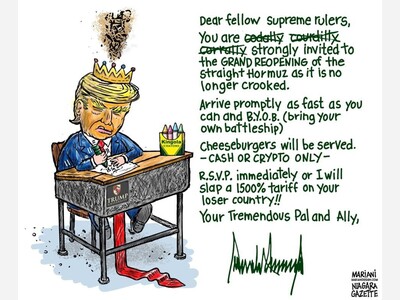 Dear fellow supreme rulers,
You are codally courdilly
corrally strongly invited to
the GRAND REOPENING of the
straight Hormuz as it is no
longer crooked.
Arrive promptly as fast as you
can and B.Y.O.B. (bring your
own battleship)
Cheeseburgers will be served.
-CASH OR CRYPTO ONLY-
R.S.V.P. immediately or I will
slap a 1500% tariff on your
loser country!!
Your Tremendous Pal and Ally,
Kingola
TRUMP
MARIANI
NIAGARA
GAZETTE